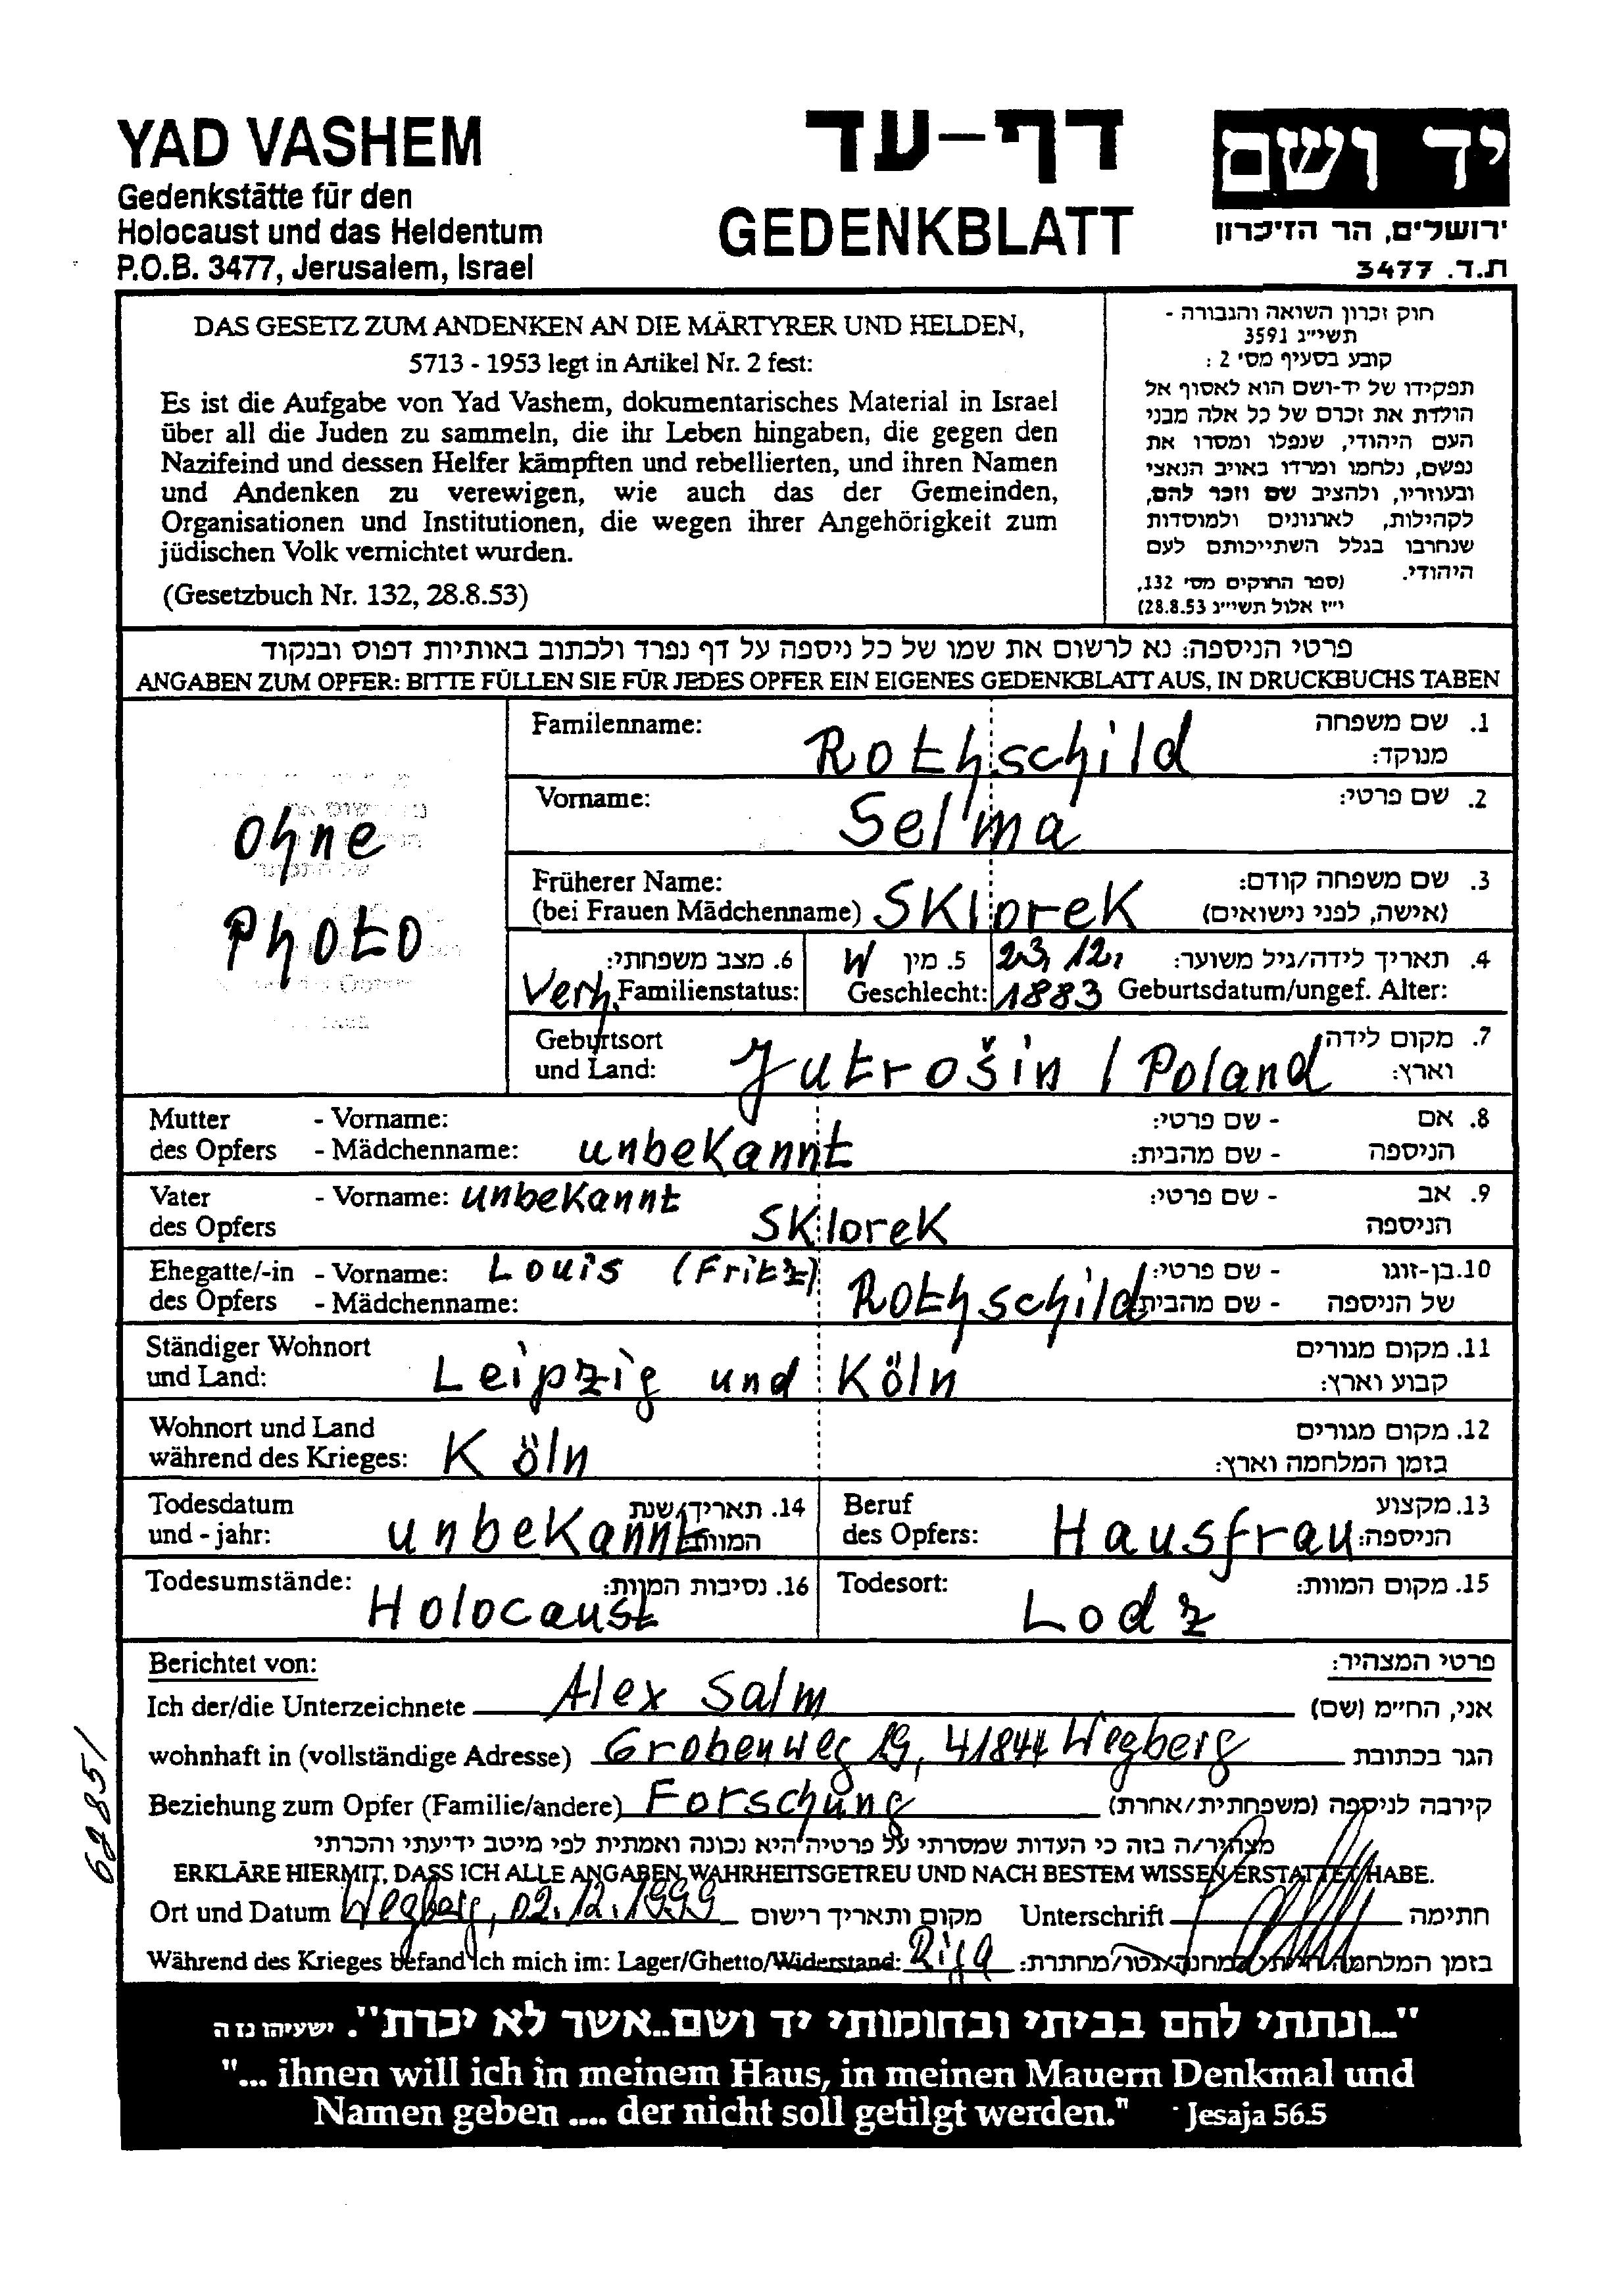 YAD VASHEM
Gedenkstätte für den
Holocaust und das Heldentum
P.O.B. 3477, Jerusalem, Israel
דף-עד
GEDENKBLATT
יד ושם
ירושלים, הר הזיכרון
ת.ד. 3477
DAS GESETZ ZUM ANDENKEN AN DIE MÄRTYRER UND HELDEN,
5713 - 1953 legt in Artikel Nr. 2 fest:
Es ist die Aufgabe von Yad Vashem, dokumentarisches Material in Israel
über all die Juden zu sammeln, die ihr Leben hingaben, die gegen den
Nazifeind und dessen Helfer kämpften und rebellierten, und ihren Namen
und Andenken zu verewigen, wie auch das der Gemeinden,
Organisationen und Institutionen, die wegen ihrer Angehörigkeit zum
jüdischen Volk vernichtet wurden.
(Gesetzbuch Nr. 132, 28.8.53)
חוק זכרון השואה והגבורה -
תשי"ג 3591
קובע בסעיף מס' 2 :
תפקידו של יד-ושם הוא לאסוף אל
הולדת את זכרם של כל אלה מבני
העם היהודי, שנפלו ומסרו את
נפשם, נלחמו ומרדו באויב הנאצי
ובעוזריו, ולהציב שם וזכר להם,
לקהילות, לארגונים ולמוסדות
שנחרבו בגלל השתייכותם לעם
היהודי. (ספר החוקים מס' 132,
י"ז אלול תשי"ג 28.8.53)
פרטי הניספה: נא לרשום את שמו של כל ניספה על דף נפרד ולכתוב באותיות דפוס ובנקוד
ANGABEN ZUM OPFER: BITTE FÜLLEN SIE FÜR JEDES OPFER EIN EIGENES GEDENKBLATT AUS, IN DRUCKBUCHS TABEN
ohne
Photo
Familenname: Rothschild 1. שם משפחה
מנוקד:
Vorname: Selma 2. שם פרטי:
Früherer Name: 3. שם משפחה קודם:
(bei Frauen Mädchenname) Sklorek (אישה, לפני נישואים)
6. מצב משפחתי: 5. מין W 23.12. 4. תאריך לידה/גיל משוער:
Verh. Familienstatus: Geschlecht: 1883 Geburtsdatum/ungef. Alter:
Geburtsort 7. מקום לידה
und Land: Jutrošin / Poland וארץ:
Mutter - Vorname: - שם פרטי: 8. אם
des Opfers - Mädchenname: unbekannt - שם מהבית: הניספה
Vater - Vorname: unbekannt - שם פרטי: 9. אב
des Opfers Sklorek הניספה
Ehegatte/-in - Vorname: Louis (Fritz) - שם פרטי: 10. בן-זוגו
des Opfers - Mädchenname: Rothschild - שם מהבית: של הניספה
Ständiger Wohnort 11. מקום מגורים
und Land: Leipzig und Köln קבוע וארץ:
Wohnort und Land 12. מקום מגורים
während des Krieges: Köln בזמן המלחמה וארץ:
Todesdatum 14. תאריך/שנת
und - jahr: unbekannt המוות:
Beruf 13. מקצוע
des Opfers: Hausfrau הניספה:
Todesumstände: Holocaust 16. נסיבות המוות:
Todesort: Lodz 15. מקום המוות:
Berichtet von: פרטי המצהיר:
Ich der/die Unterzeichnete Alex Salm אני, הח"מ (שם)
wohnhaft in (vollständige Adresse) Grobenweg 19, 41844 Wegberg הגר בכתובת
Beziehung zum Opfer (Familie/andere) Forschung קירבה לניספה (משפחתית/אחרת)
מצהיר/ה בזה כי העדות שמסרתי על פרטיה היא נכונה ואמתית לפי מיטב ידיעתי והכרתי
ERKLÄRE HIERMIT, DASS ICH ALLE ANGABEN WAHRHEITSGETREU UND NACH BESTEM WISSEN ERSTATTET HABE.
Ort und Datum Wegberg, 02.12.1999 מקום ותאריך רישום Unterschrift חתימה
Während des Krieges befand ich mich im: Lager/Ghetto/Widerstand: Riga בזמן המלחמה הייתי במחנה/גטו/מחתרת:
62851
"...ונתתי להם בביתי ובחומותי יד ושם..אשר לא יכרת". ישעיהו נז ה
"... ihnen will ich in meinem Haus, in meinen Mauern Denkmal und
Namen geben .... der nicht soll getilgt werden." Jesaja 56.5